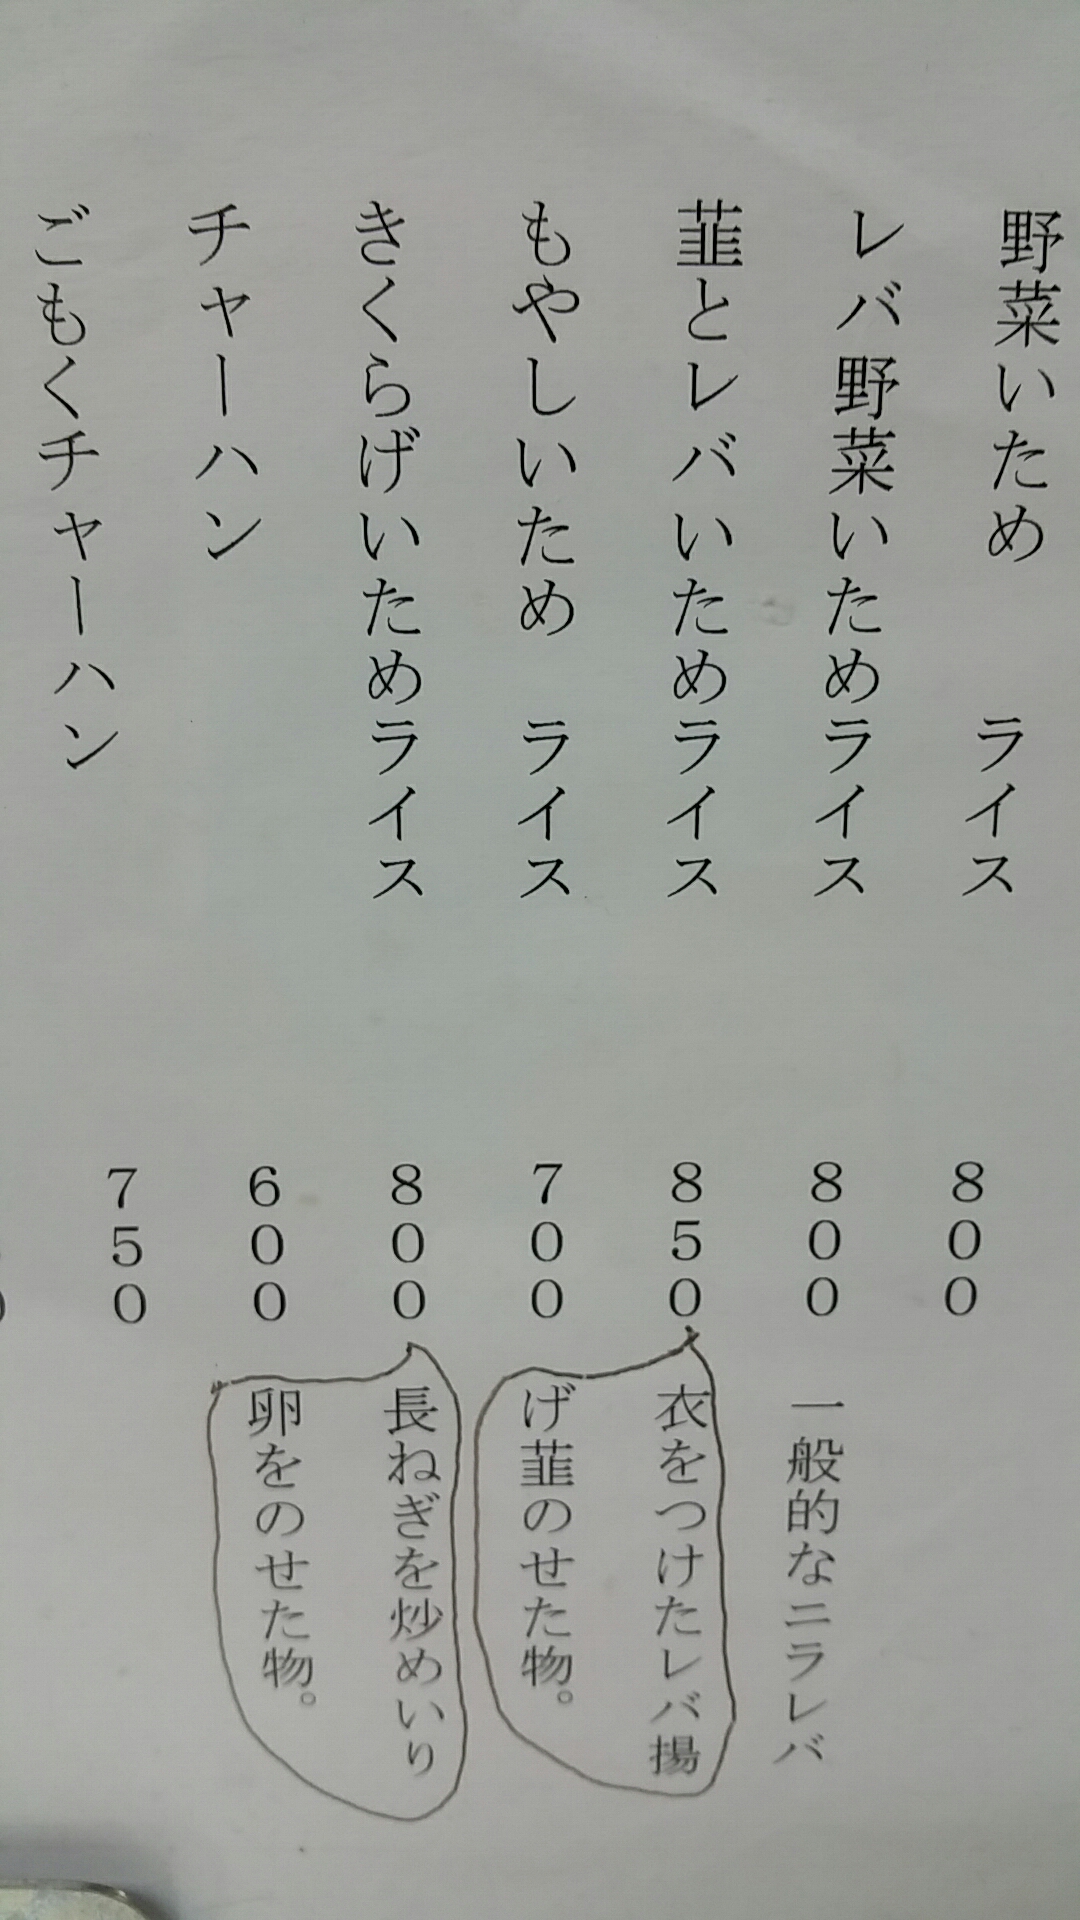 野菜いため　ライス　800
レバ野菜いためライス　800　一般的なニラレバ
韮とレバいためライス　850　衣をつけたレバ揚
もやしいため　ライス　700　げ韮のせた物。
きくらげいためライス　800　長ねぎを炒めいり
チャーハン　600　卵をのせた物。
ごもくチャーハン　750